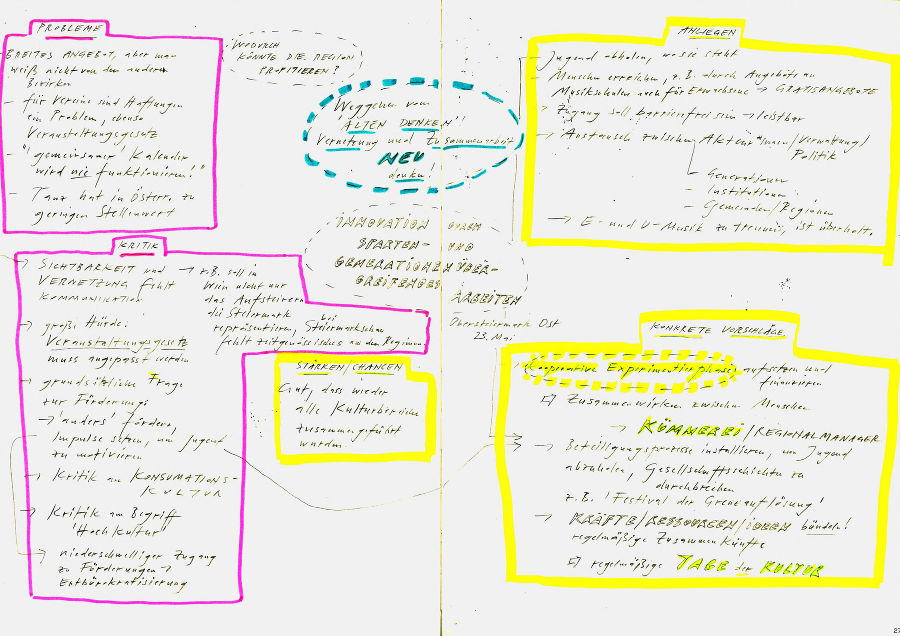 PROBLEME
BREITES ANGEBOT, aber man
weiß nicht von den anderen
Bezirken
- für Vereine sind Haftungen
ein Problem, ebenso
Veranstaltungsgesetz
- "gemeinsamer Kalender
wird nie funktionieren!"
- Tanz hat in Österr. zu
geringen Stellenwert
WODURCH
KÖNNTE DIE REGION
PROFITIEREN?
Weggehen vom
'ALTEN DENKEN'!!
Vernetzung und Zusammenarbeit
NEU
denken!
INNOVATION
SPARTEN- UND
GENERATIONENÜBER-
GREIFENDES
ARBEITEN
Obersteiermark Ost
23. Mai
KRITIK
→ SICHTBARKEIT und
VERNETZUNG fehlt
KOMMUNIKATION
→ z.B. soll in
Wien nicht nur
das Aufsteirern
die Steiermark
repräsentieren, bei Steiermarkschau
fehlt zeitgenössisches aus den Regionen
→ große Hürde:
Veranstaltungsgesetz
muss angepasst werden
→ grundsätzliche Frage
zur Förderung:
→ 'anders' fördern,
Impulse setzen, um Jugend
zu motivieren
→ Kritik an KONSUMATIONS-
KULTUR
→ Kritik am Begriff
'Hochkultur'
→ niederschwelliger Zugang
zu Förderungen →
Entbürokratisierung
STÄRKEN/CHANCEN
Gut, dass wieder
alle Kulturbereiche
zusammengeführt
wurden.
ANLIEGEN
- Jugend abholen, wo sie steht
- Menschen erreichen, z.B. durch Angebote an
Musikschulen auch für Erwachsene → GRATISANGEBOTE
→ Zugang soll barrierefrei sein → leistbar
→ Austausch zwischen Akteur*innen/Verwaltung/
Politik
- Generationen
- Institutionen
- Gemeinden/Regionen
→ E- und U-Musik zu trennen, ist überholt.
KONKRETE VORSCHLÄGE
Kooperative Experimentierphase aufsetzen und
finanzieren
Zusammenwirken zwischen Menschen
→ KÜMMEREI/REGIONALMANAGER
→ Beteiligungsprozesse installieren, um Jugend
abzuholen, Gesellschaftsschichten zu
durchbrechen
z.B. 'Festival der Grenzauflösung'
→ KRÄFTE/RESSOURCEN/IDEEN bündeln!
regelmäßige Zusammenkünfte
regelmäßige TAGE der KULTUR